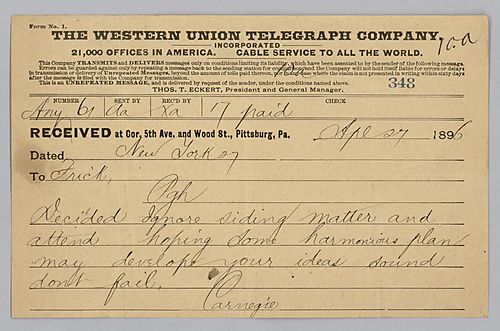 Form No. 1.
THE WESTERN UNION TELEGRAPH COMPANY.
INCORPORATED
21,000 OFFICES IN AMERICA. CABLE SERVICE TO ALL THE WORLD.
This Company TRANSMITS and DELIVERS messages only on conditions limiting its liability, which have been assented to by the sender of the following message.
Errors can be guarded against only by repeating a message back to the sending station for comparison, and the Company will not hold itself liable for errors or delays
in transmission or delivery of Unrepeated Messages, beyond the amount of tolls paid thereon, nor in any case where the claim is not presented in writing within sixty days
after the message is filed with the Company for transmission.
This is an UNREPEATED MESSAGE, and is delivered by request of the sender, under the conditions named above.
343
THOS. T. ECKERT, President and General Manager.
NUMBER SENT BY REC'D BY CHECK
Any 61 Ua Xa 17 paid
RECEIVED at Cor. 5th Ave. and Wood St., Pittsburg, Pa. Apl 27 1896
Dated New York 27
To Frick,
Pgh
Decided ignore siding matter and
attend hoping some harmonious plan
may develope your ideas sound
dont fail.
Carnegie